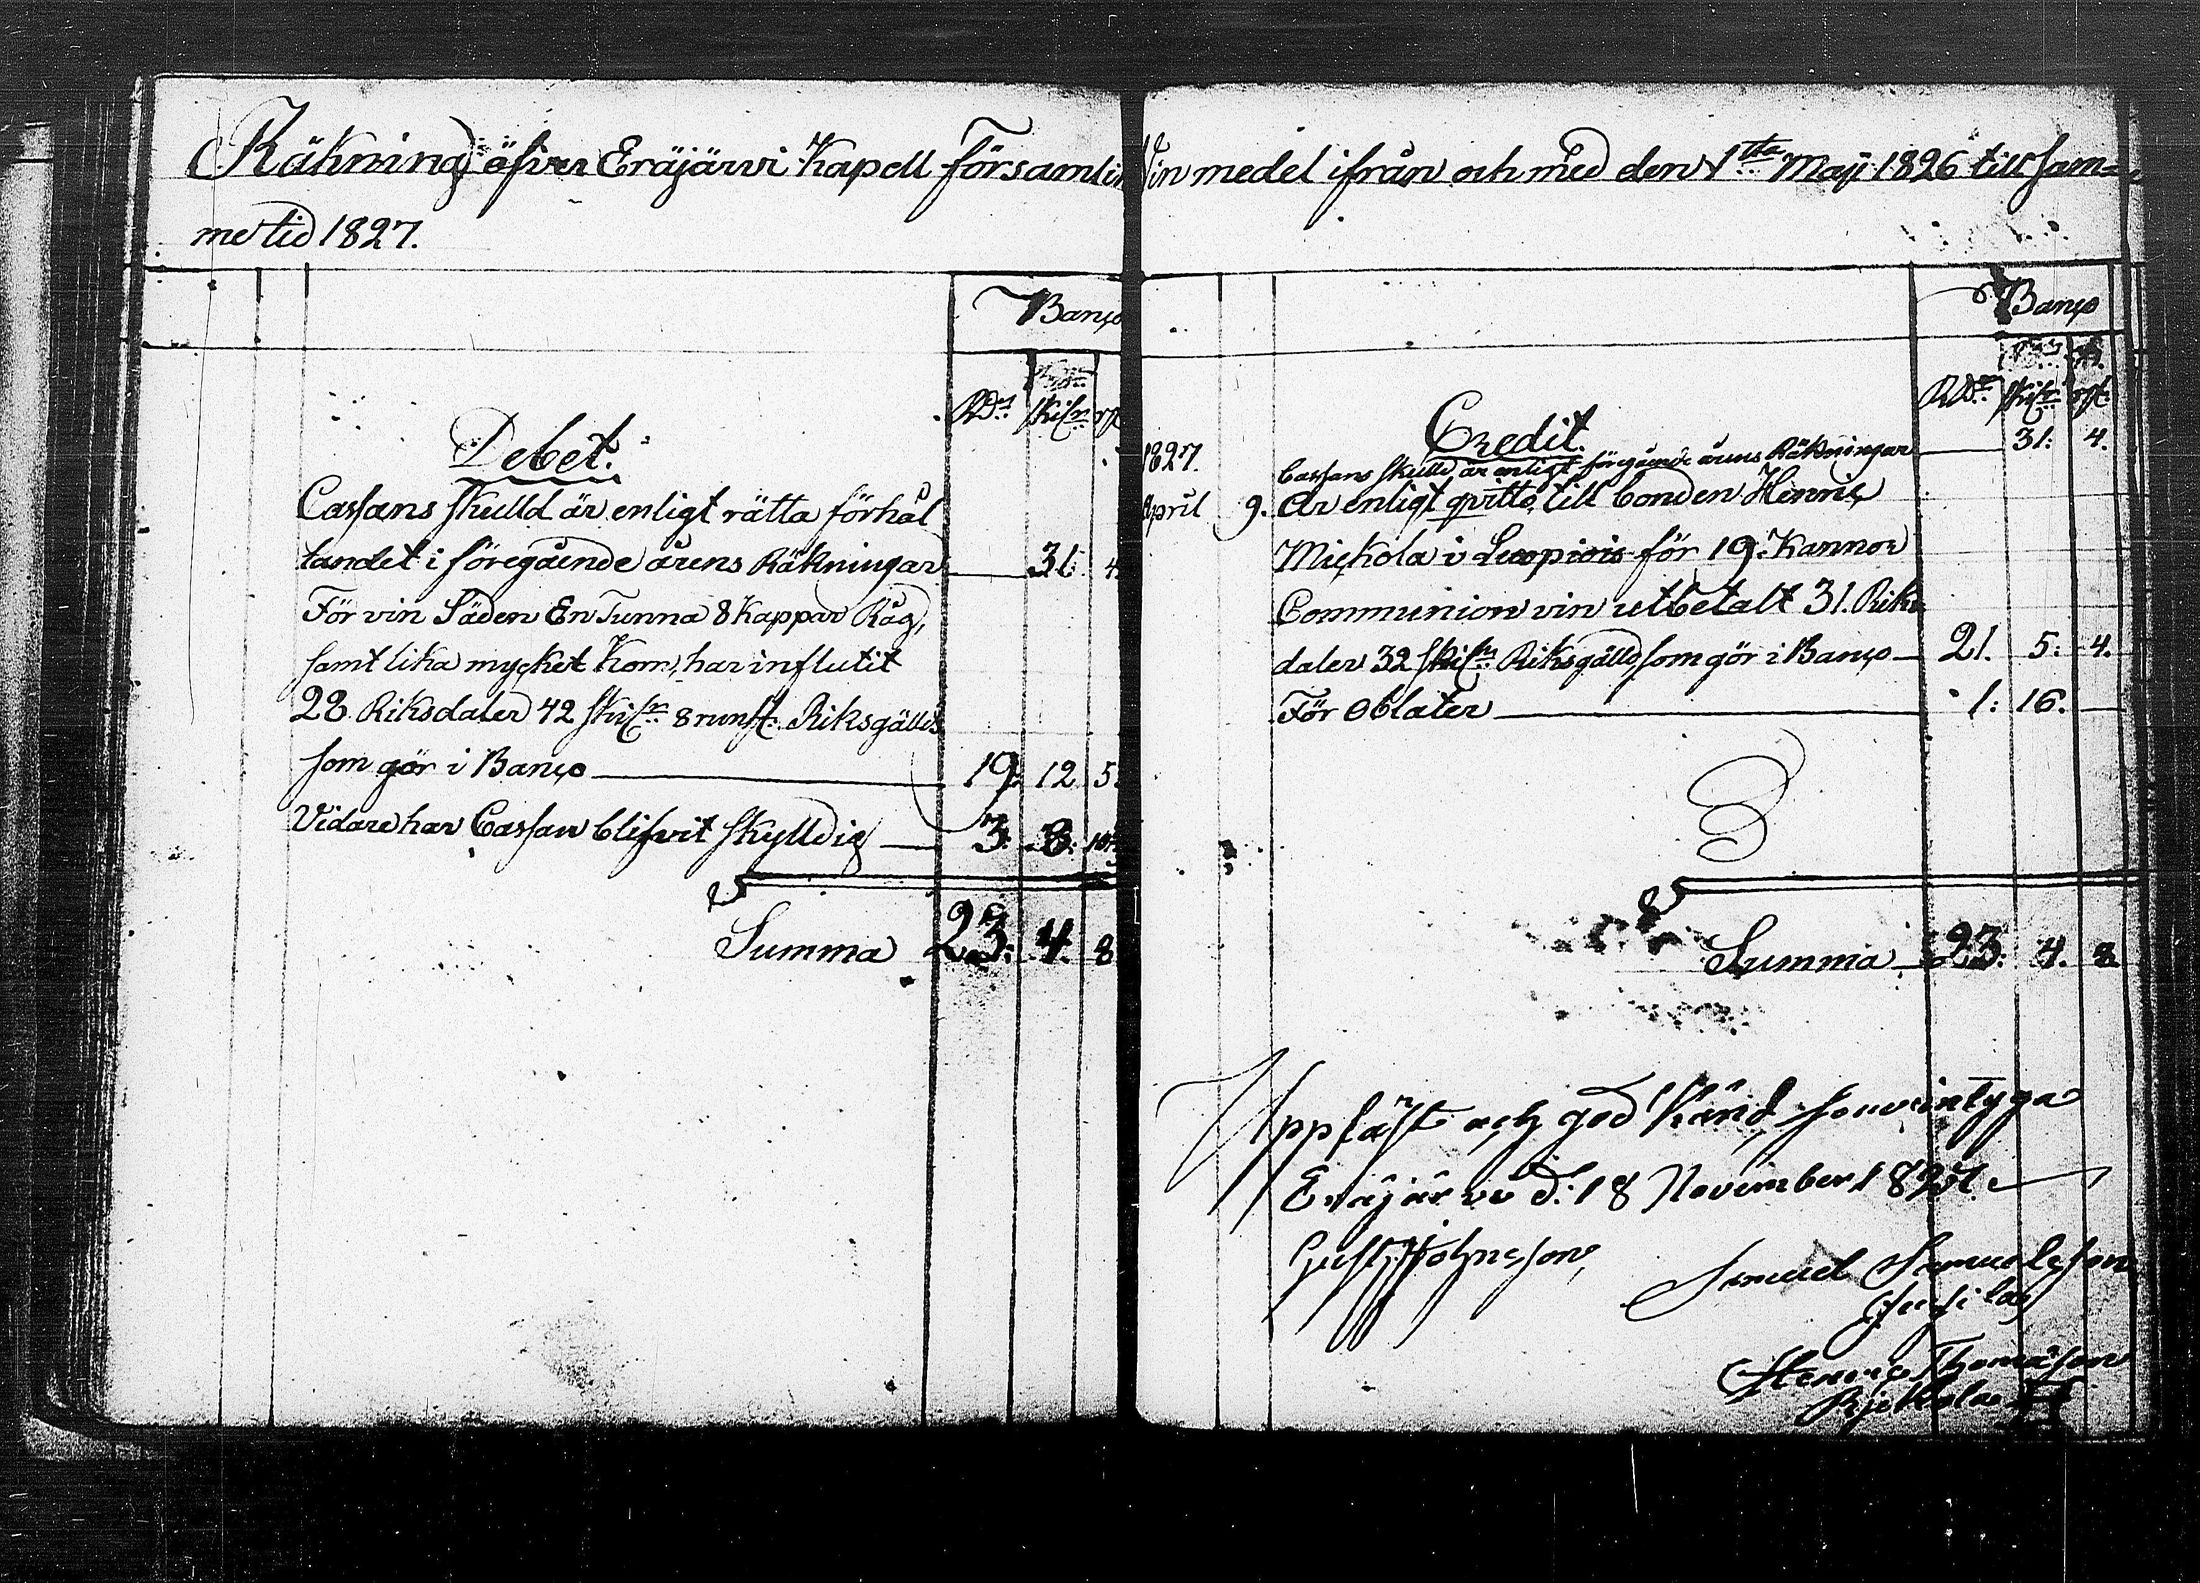 Räkning öfver Eräjärvi Kapell församlin Vin medel ifrån och med den 1sta Maji 1826 till sam=
me tid 1827.
Banco
Rdr skilr rst
Debet.
Cassans skulld är enligt rätta förhål
landet i föregående årens Räkningar 31: 4
För vin Säden En Tunna 8 Kappar Råg,
samt lika mycket Korn, har influtit
28 Riksdaler 42 skilr 8 runst. Riksgälds
som gör i Banco 19: 12 5:
Vidare har Cassan blifvit skylldig 3: 8:
Summa 23: 4: 8
Banco
RDr skilr rst.
Credit.
1827. Cassans skulld är enligt föregående årens Räkningar 31: 4.
April 9. Är enligt qvitto till bonden Henric
Mickola i för 19 Kannor
Communion vin utbetalt 31. Riks
daler 32 skilr Riksgälld, som gör i Banco 21. 5: 4.
För Oblater 1: 16.
Summa 23: 4. 8
Uppläst och god Känd som intyga
Eräjärvi d. 18 November 1827.
Gust: Johnsson,
Samuel Samuelsson
Henric Thomasson